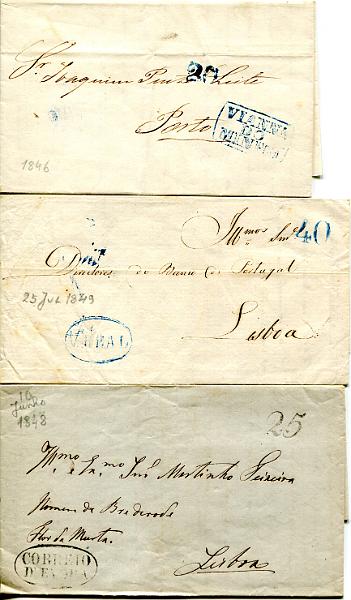 20
Sr. Joaquim Pinto Leite
VIANNA
DO
MINHO
Porto
1846
40
Illmos Snres
Directores do Banco de Portugal
25 Jul 1849
Lisboa
V. REAL
16
Junho
1848
25
Illmo e Exmo Snr Martinho Teixeira
Homem de Brederode
Flor da Murta.
CORREIO
D'EVORA
Lisboa